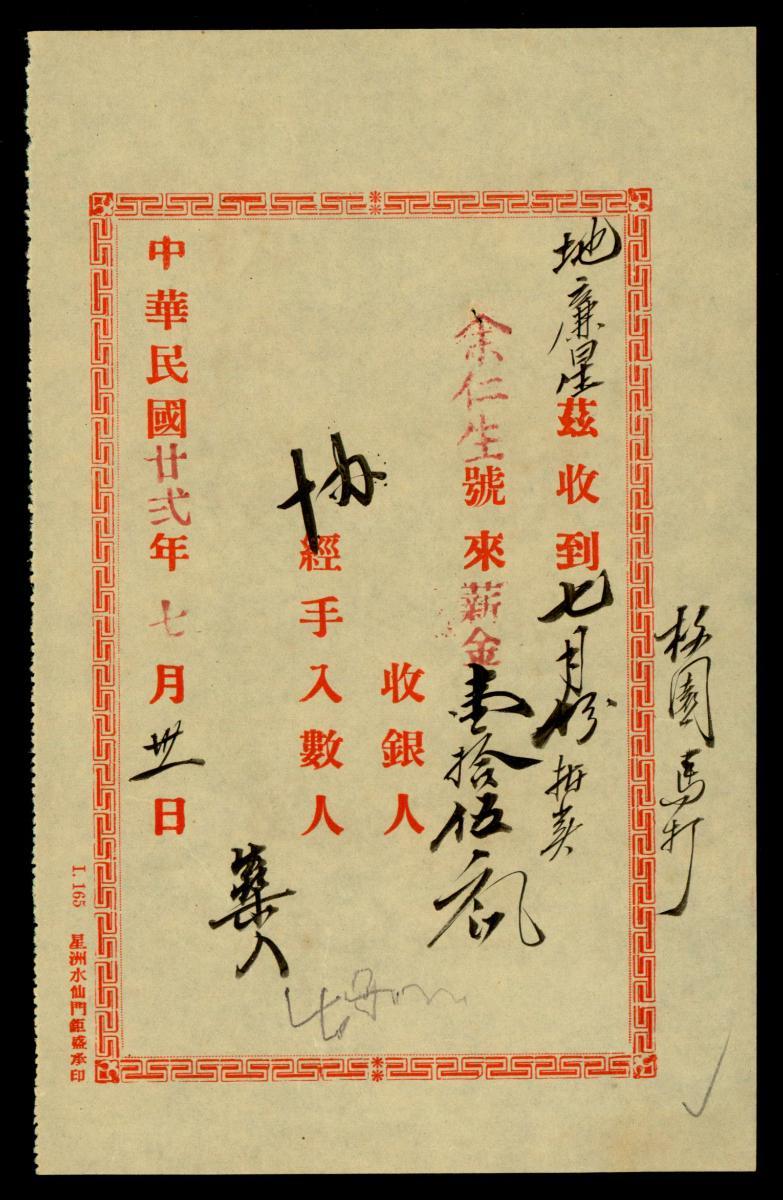 馬打
地廉星茲收到七月份
余仁生號來薪金壹拾伍
收銀人
協經手入數人
入
中華民國廿弍年七月卅一日
I. 165 星洲水仙門鉅盛承印